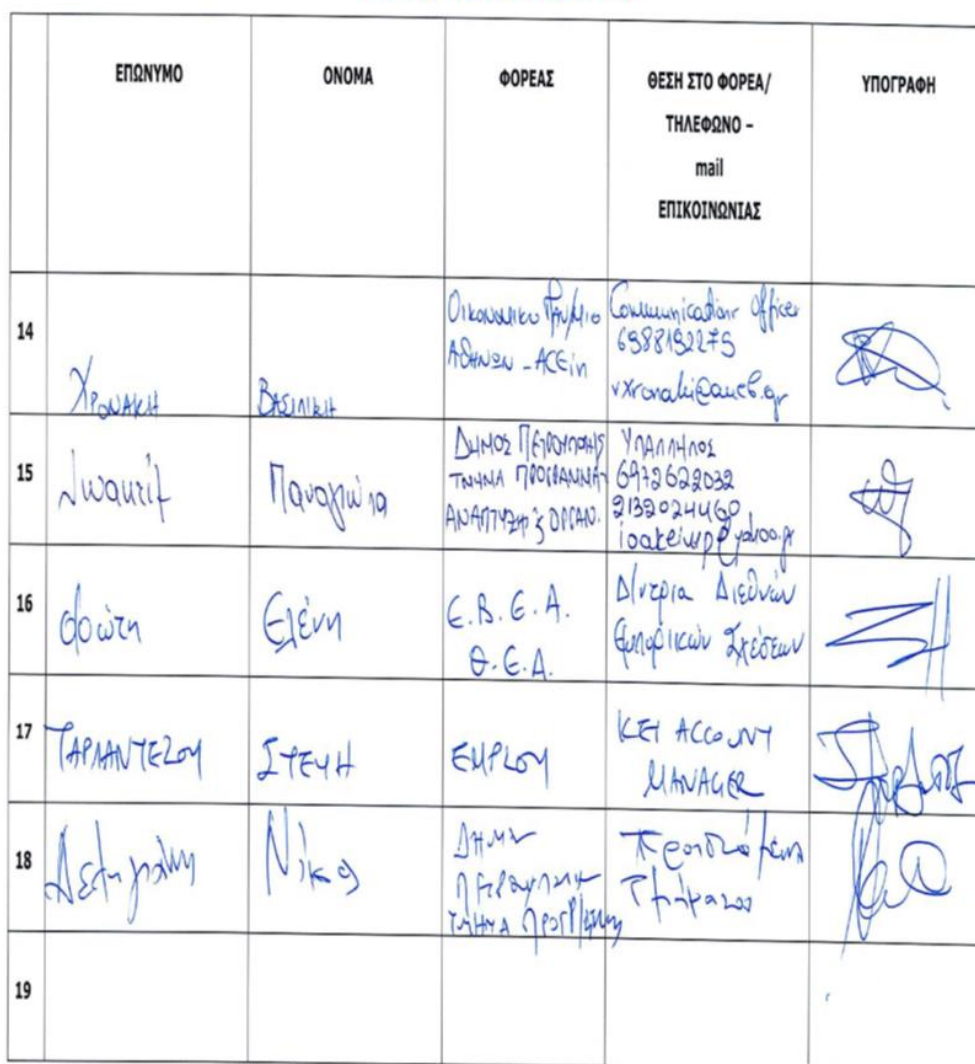 ΕΠΩΝΥΜΟ ΟΝΟΜΑ ΦΟΡΕΑΣ ΘΕΣΗ ΣΤΟ ΦΟΡΕΑ/ ΥΠΟΓΡΑΦΗ
ΤΗΛΕΦΩΝΟ –
mail
ΕΠΙΚΟΙΝΩΝΙΑΣ
14
Χρονακη
Βασιλικη
Οικονομικο Παν/μιο
Αθηνων - ACEin
Communication Officer
6988192279
vxronaki@aueb.gr
15
Ιωακείμ
Παναγιώτα
ΔΗΜΟΣ ΠΕΤΡΟΥΠΟΛΗΣ
ΤΜΗΜΑ ΠΡΟΓΡΑΜΜΑΤ
ΑΝΑΠΤΥΞΗΣ ΟΡΓΑΝ.
ΥΠΑΛΛΗΛΟΣ
6972622032
2132024460
ioakeimp@yahoo.gr
16
Φρώτη
Ελένη
Ε.Β.Ε.Α.
Θ.Ε.Α.
Δ/ντρια Διεθνών
Εμπορικών Σχέσεων
17
ΤΑΡΛΑΝΤΕΖΟΥ
ΣΤΕΥΗ
EMPLOY
KEY ACCOUNT
MANAGER
18
Νίκος
ΤΜΗΜΑ
Τμήματος
19